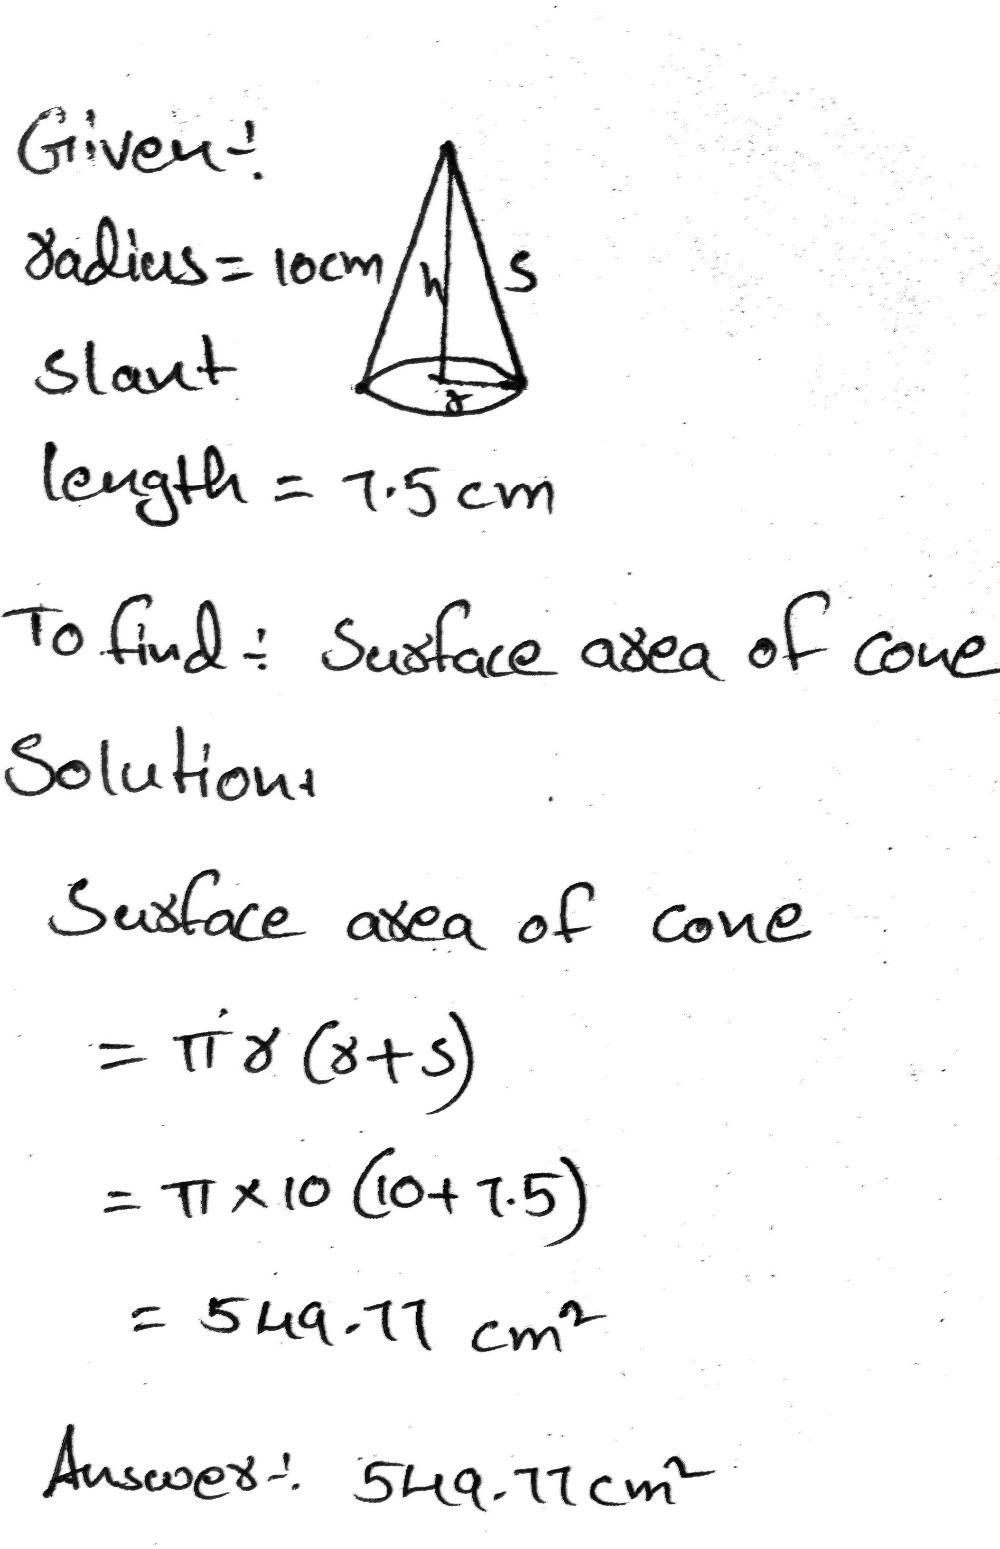 Given:
radius = 10cm
h
s
r
slant
length = 7.5 cm
To find: Surface area of cone
Solution:
Surface area of cone
= πr (r+s)
= π × 10 (10+7.5)
= 549.77 cm²
Answer: 549.77 cm²